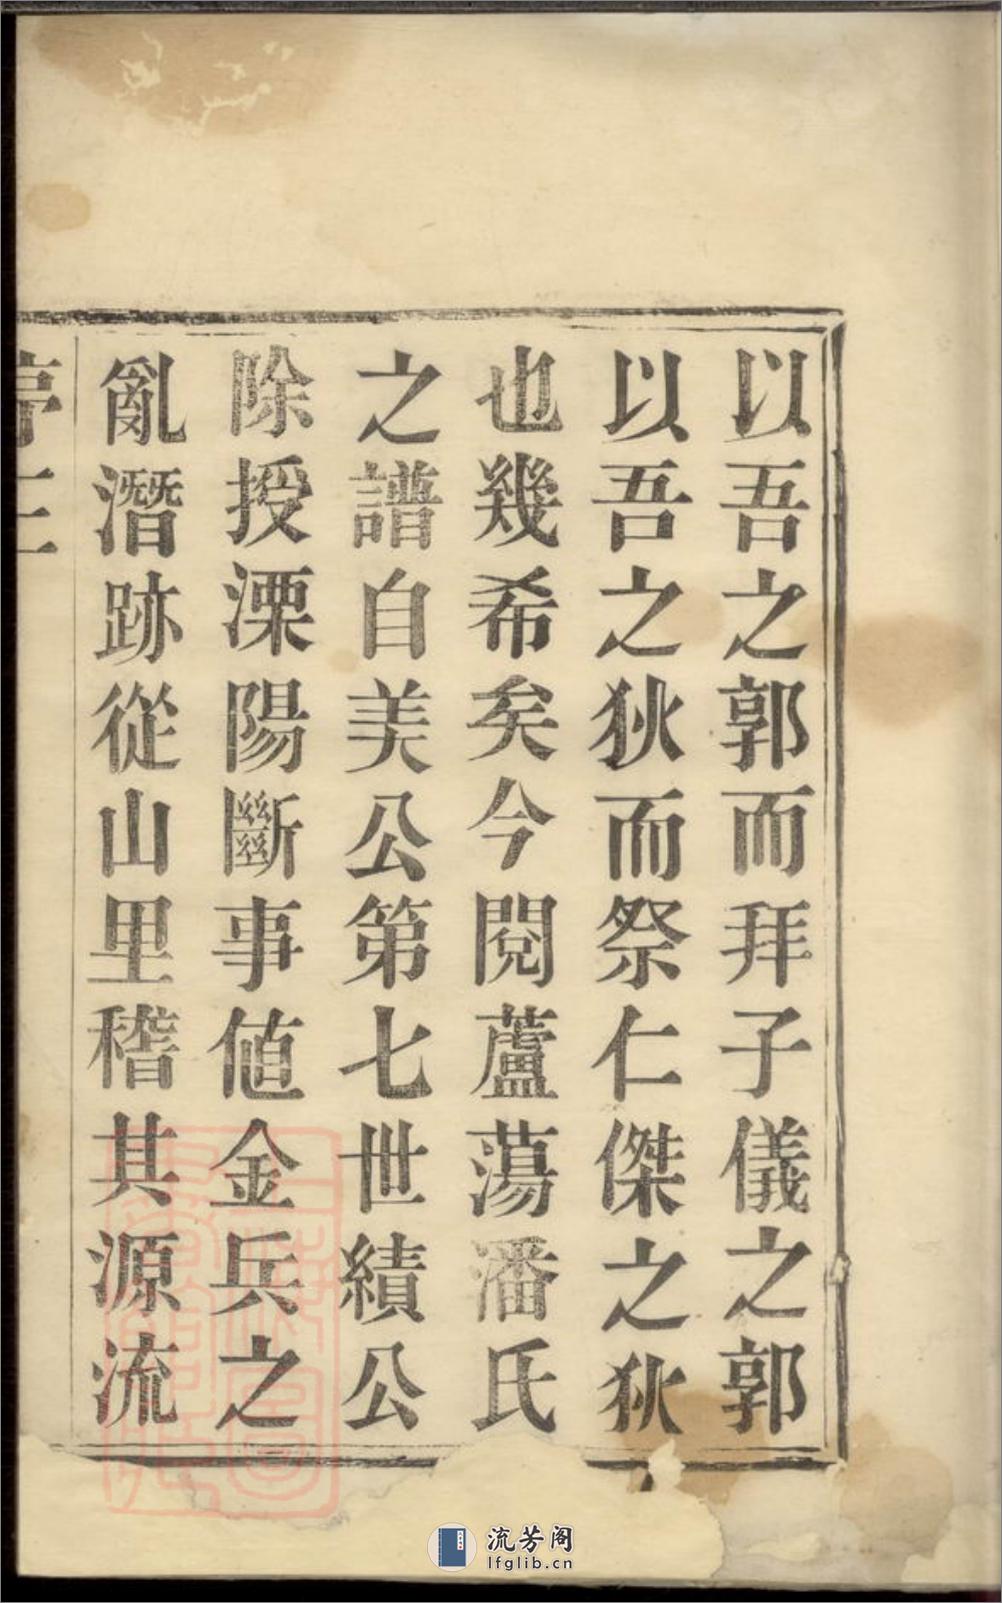 以吾之郭而拜子儀之郭
以吾之狄而祭仁傑之狄
也幾希矣今閱蘆蕩潘氏
之譜自美公第七世績公
除授溧陽斷事値金兵之
亂潛跡從山里稽其源流
流芳阁
lfglib.cn